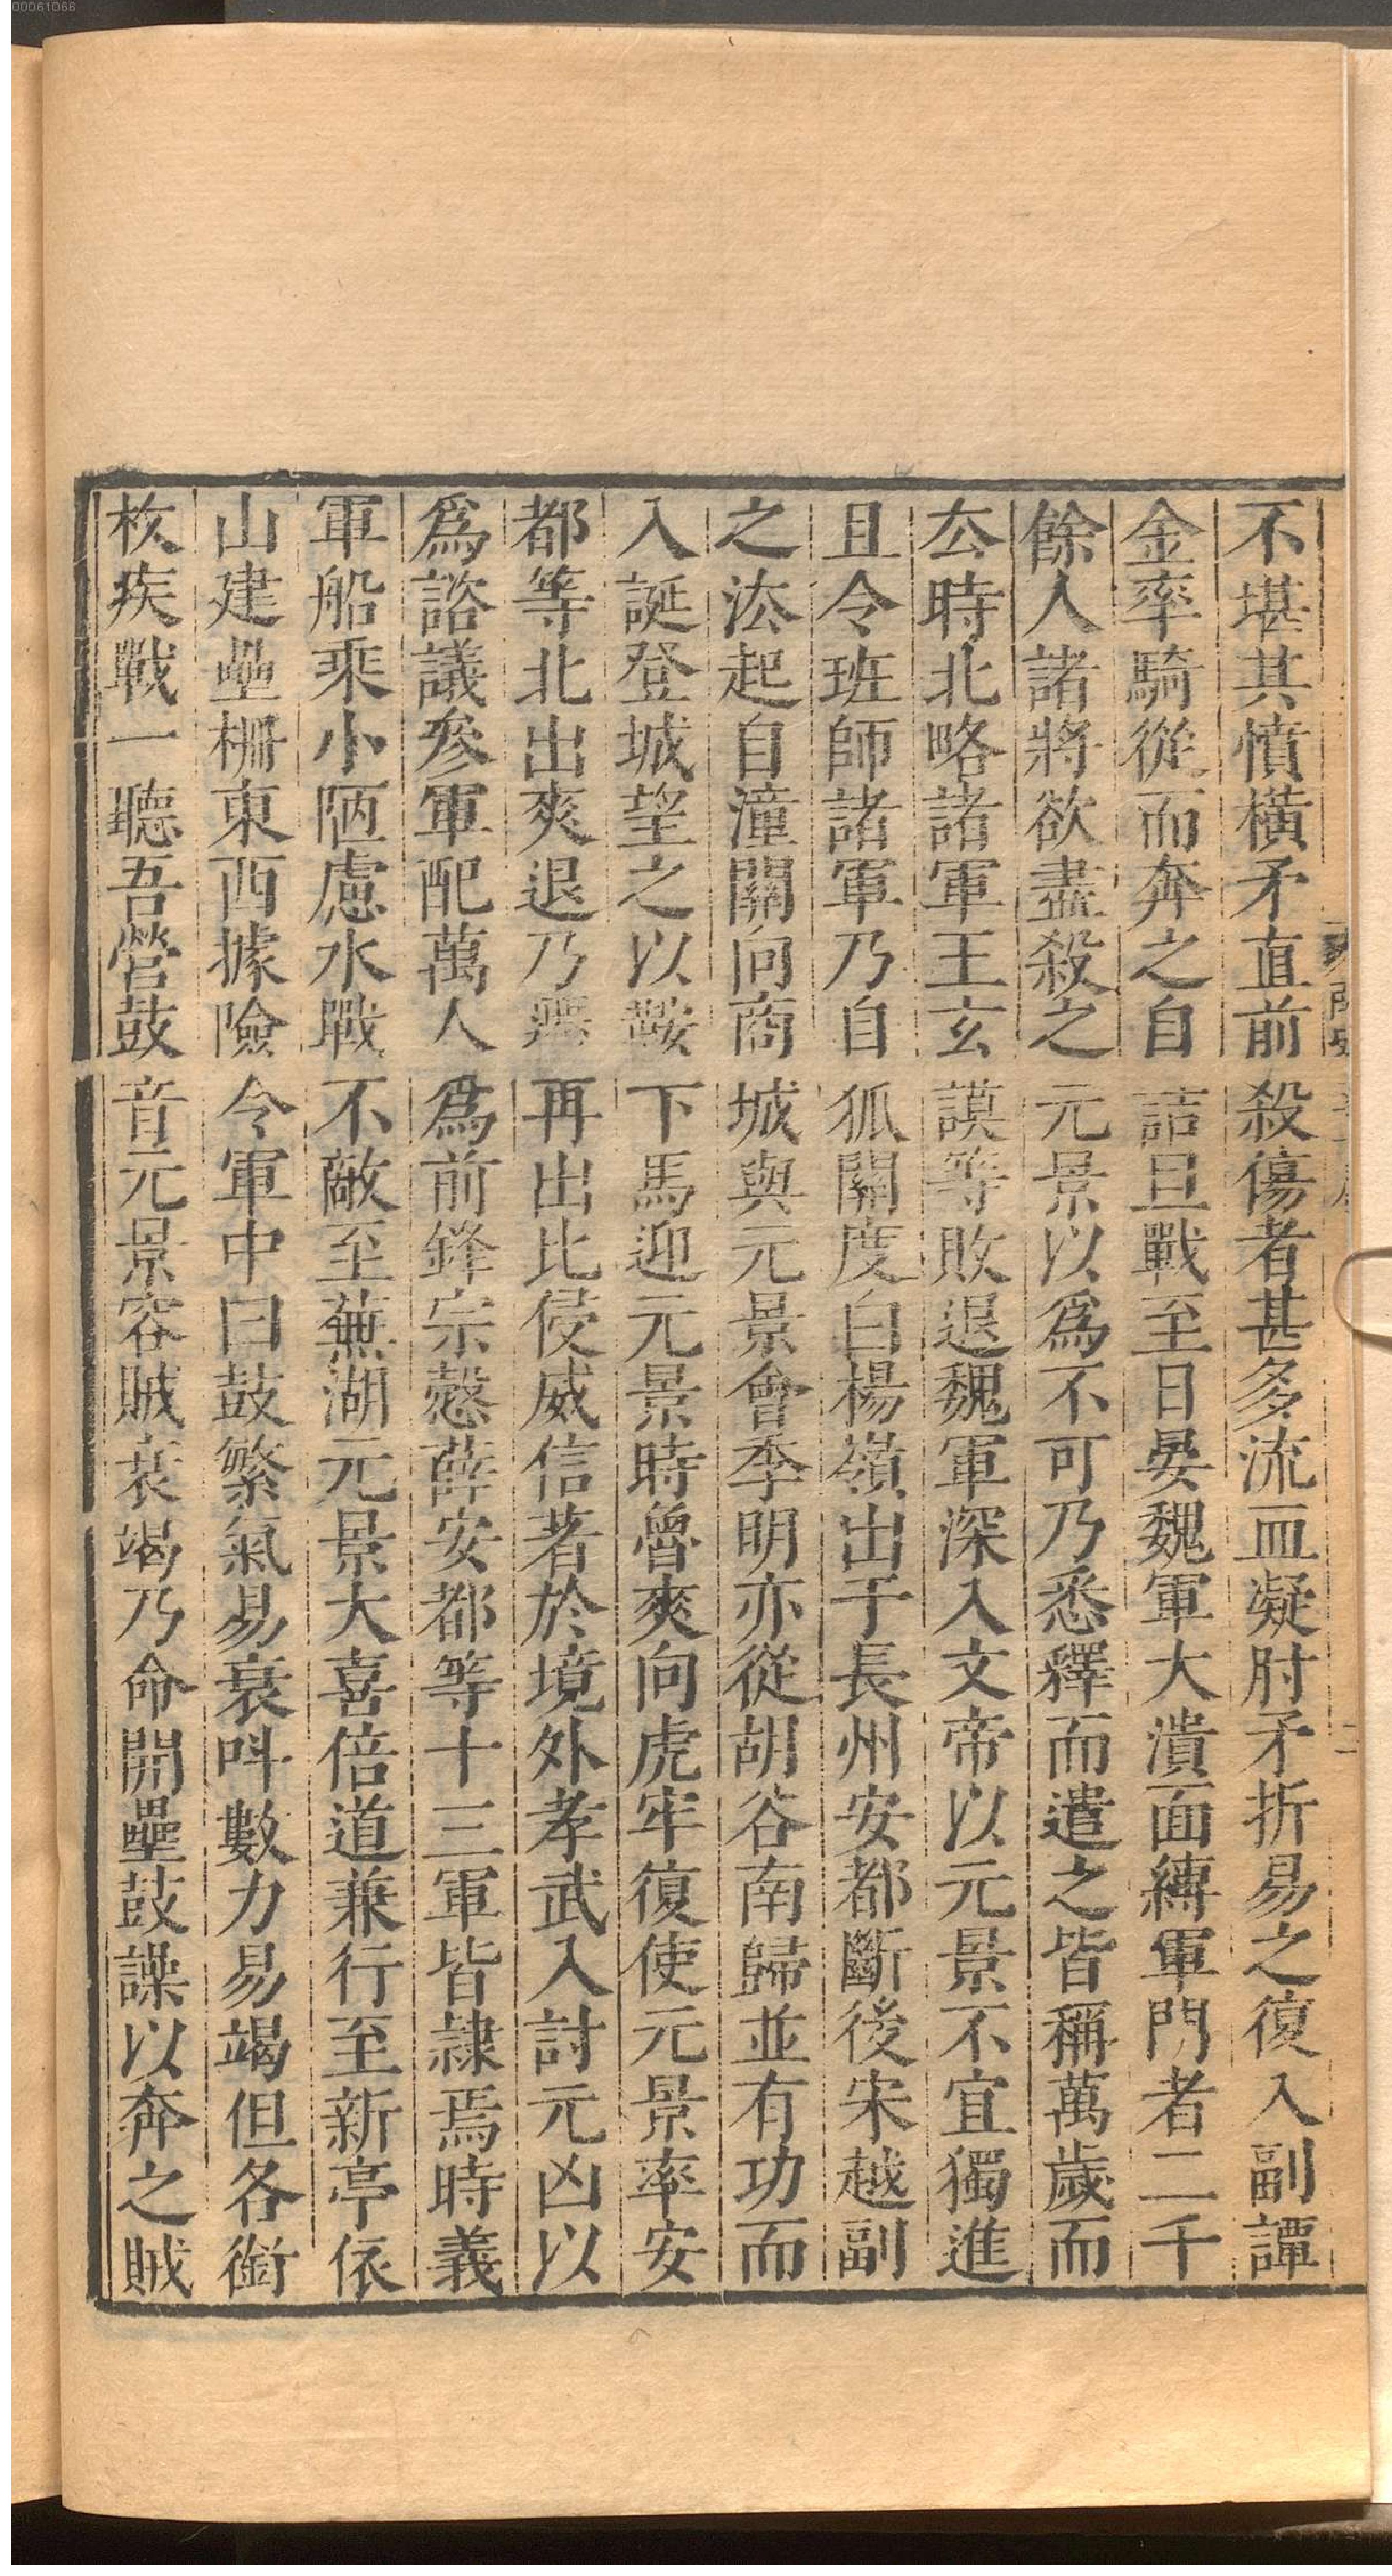 00061066
不堪其憤橫矛直前殺傷者甚多流血凝肘矛折易之復入副譚
金率騎從而奔之自詣旦戰至日晏魏軍大潰面縛軍門者二千
餘人諸將欲盡殺之元景以為不可乃悉釋而遣之皆稱萬歲而
去時北略諸軍王玄謨等敗退魏軍深入文帝以元景不宜獨進
且令班師諸軍乃自狐關度白楊嶺出于長州安都斷後宋越副
之法起自潼關向商城與元景會季明亦從胡谷南歸並有功而
入誕登城望之以鞍下馬迎元景時魯爽向虎牢復使元景率安
都等北出爽退乃還再出比侵威信著於境外孝武入討元凶以
爲諮議參軍配萬人爲前鋒宗愨薛安都等十三軍皆隷焉時義
軍船乘小陋慮水戰不敵至蕪湖元景大喜倍道兼行至新亭依
山建壘柵東西據險令軍中曰鼓繁氣易衰呌數力易竭但各銜
枚疾戰一聽吾營鼓音元景容賊衰竭乃命開壘鼓譟以奔之賊